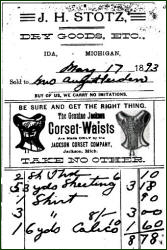 J. H. STOTZ,
DRY GOODS, ETC.,
IDA, MICHIGAN,
May 17 1893
Sold to
BUY OF US, WE CARRY NO IMITATIONS.
BE SURE AND GET THE RIGHT THING.
The Genuine Jackson
Corset-Waists
Are Made ONLY by the
JACKSON CORSET COMPANY,
Jackson, Mich.
TAKE NO OTHER.
2 10
5 yds Sheeting 3 18
1 Shirt 50
3 " 8/ 3 00
6 yds Calico 60